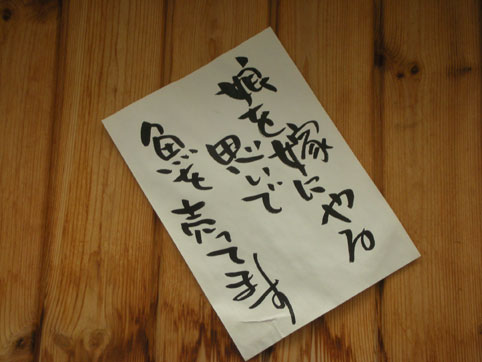 娘を嫁にやる
思いで
魚を売ってます